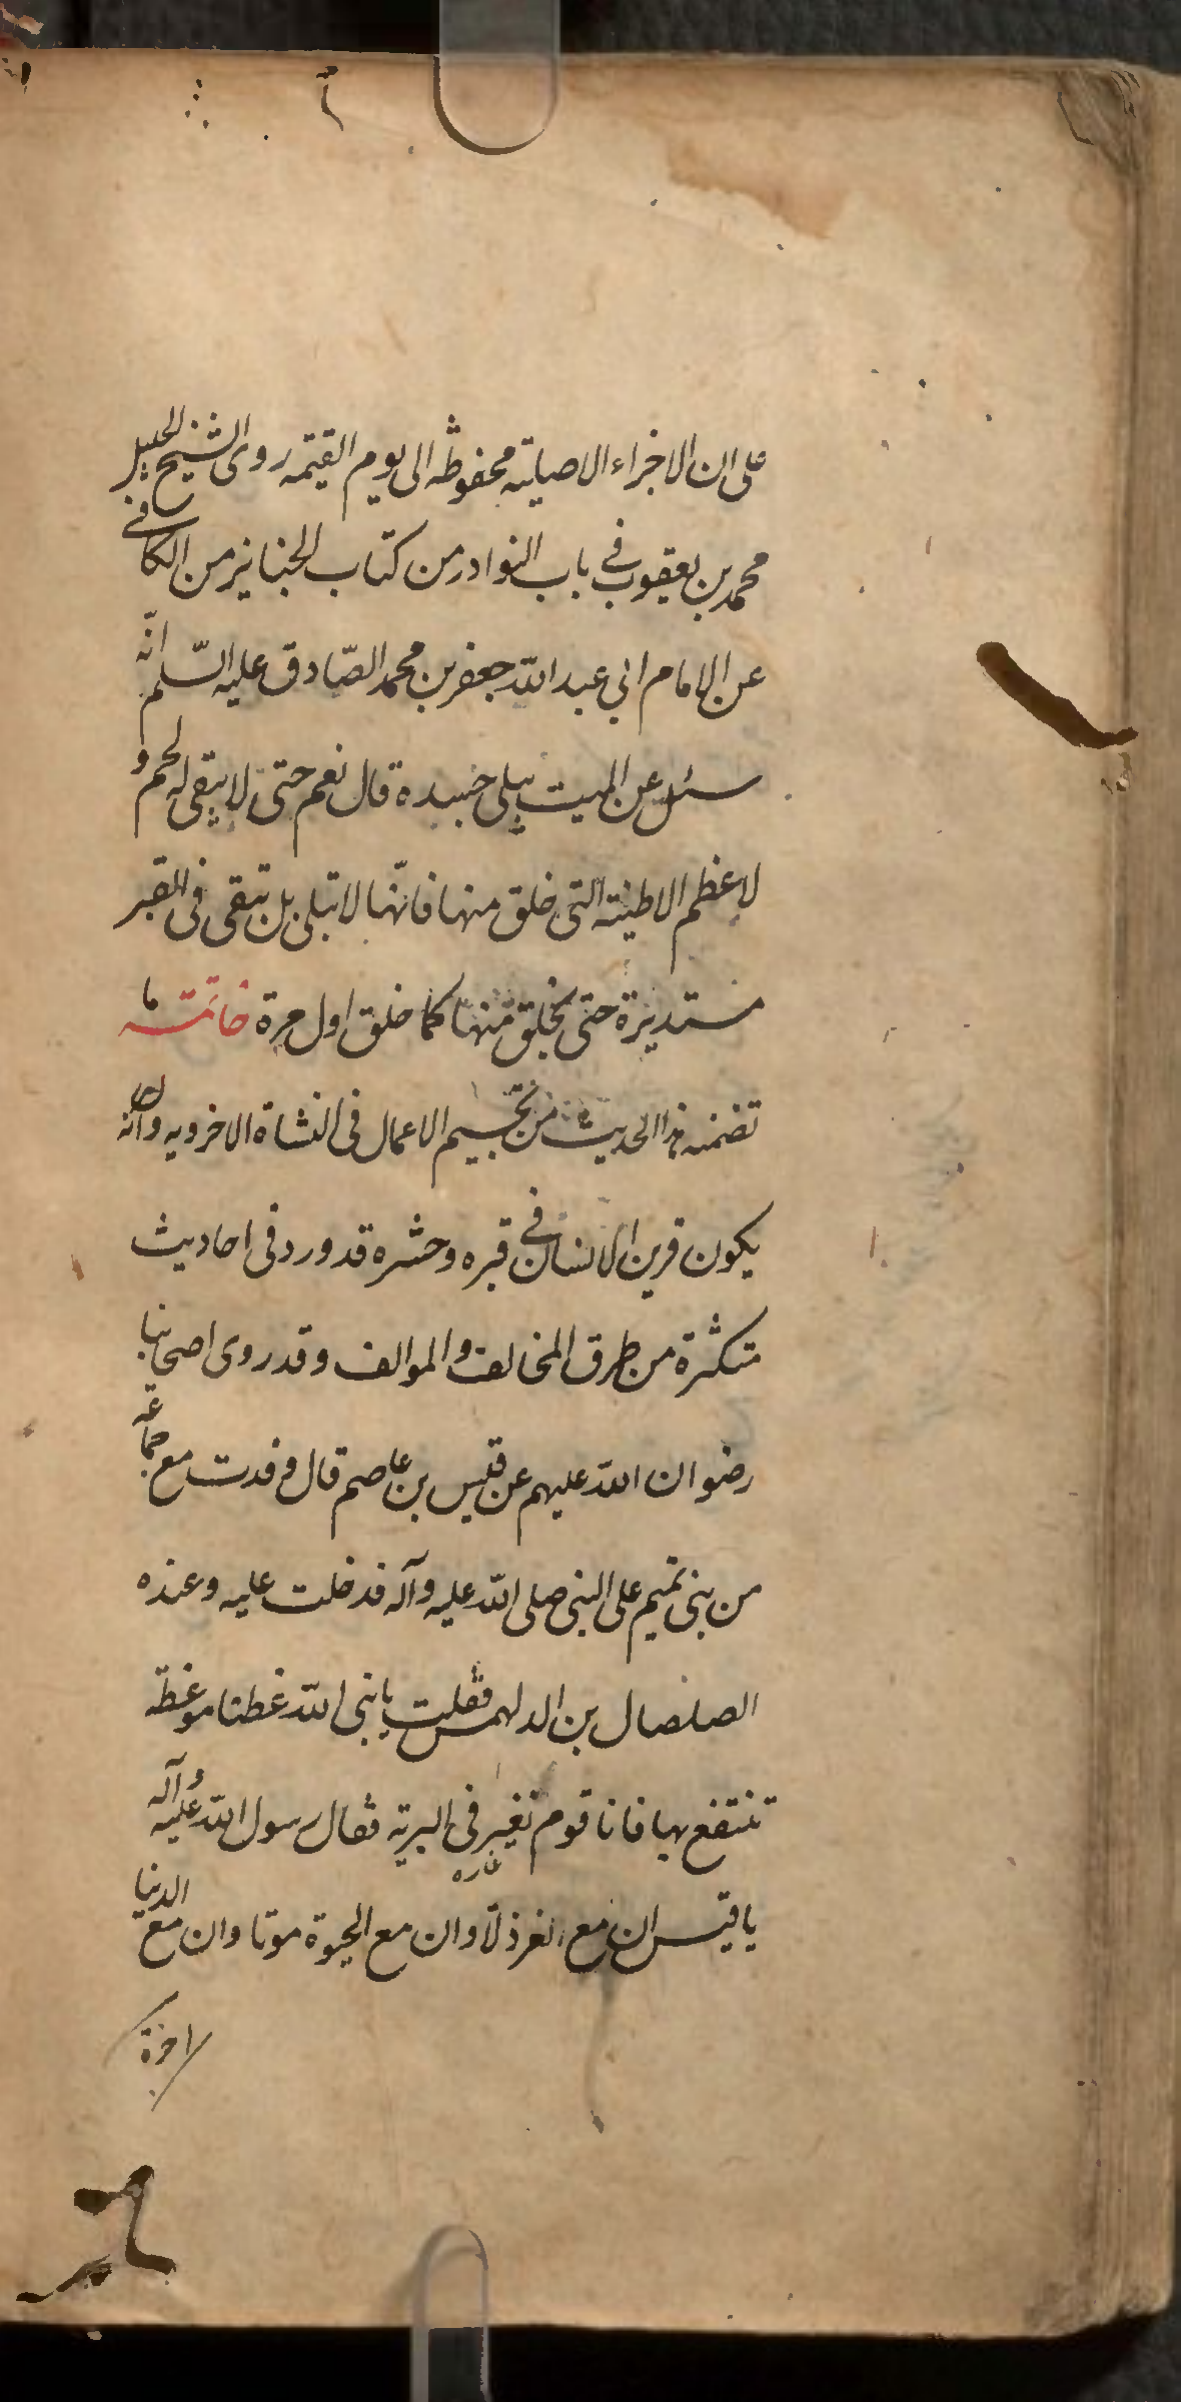 على ان الاجزاء الاصلية محفوظه الى يوم القيمه روى الشيخ الجليل
محمد بن يعقوب في باب النوادر من كتاب الجنايز من الكافي
عن الامام ابي عبد الله جعفر بن محمد الصّادق عليه السّلم انّه
سئل عن الميت يبلى جسده قال نعم حتى لا يبقى له لحم و
لا عظم الا طينته التى خلق منها فانّها لا تبلى بل تبقى فى القبر
مستديرة حتى يخلق منها كما خلق اول مرة خاتمة ما
تضمنه هذا الحديث من تجسيم الاعمال فى النشاة الاخرويه وانه
يكون قرين الانسان في قبره وحشره قد ورد فى احاديث
متكثرة من طرق المخالف والموالف وقد روى اصحابنا
رضوان الله عليهم عن قيس بن عاصم قال وفدت مع جماعة
من بنى تميم على النبى صلى الله عليه وآله فدخلت عليه وعنده
الصلصال بن الدلهمس فقلت يا نبى الله عظنا موعظة
ننتفع بها فانا قوم نغير فى البرية فقال رسول الله عليه وآله
غاره
يا قيس ان مع العز ذلا وان مع الحيوة موتا وان مع الدنيا
اخرة